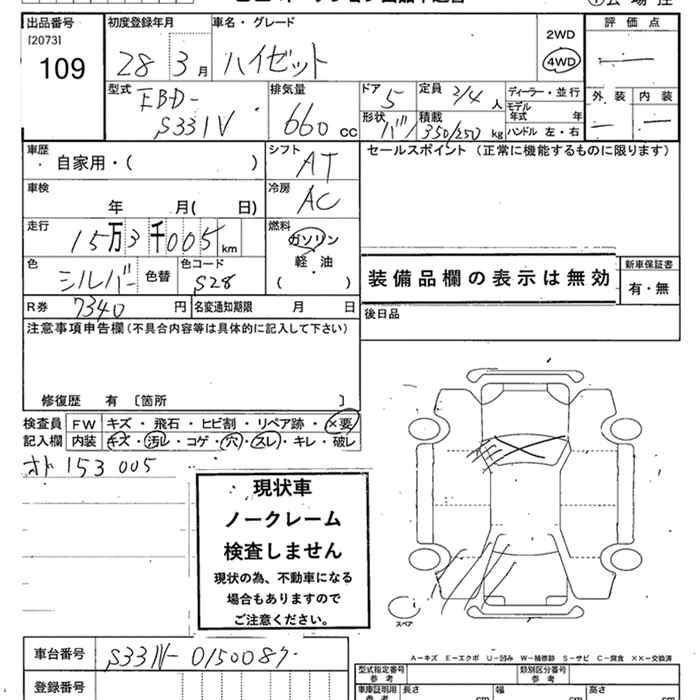 出品番号 初度登録年月 車名・グレード 評価点
[2073]
109 28年3月 ハイゼット 2WD 4WD
外装 内装
型式 EBD-S331V 排気量 660cc ドア 5 定員 2/4人 ディーラー・並行
モデル年式 年
形状 バン 積載 350/250kg ハンドル 左・右
車歴 自家用・( ) シフト AT セールスポイント (正常に機能するものに限ります)
車検 年 月( 日) 冷房 AC
走行 15万3千005km 燃料 ガソリン
軽・油
( )
色 シルバー 色替 色コード S28
装備品欄の表示は無効 新車保証書
有・無
R券 7340円 名変通知期限 月 日
後日品
注意事項申告欄(不具合内容等は具体的に記入して下さい)
修復歴 有 [箇所 ]
検査員 FW キズ・飛石・ヒビ割・リペア跡・×要
記入欄 内装 キズ・汚レ・コゲ・穴・スレ・キレ・破レ
オド 153005
現状車
ノークレーム
検査しません
現状の為、不動車になる
場合もありますので
ご注意ください。
スペア
車台番号 S331V-0150087
A-キズ E-エクボ U-凹み W-補修跡 S-サビ C-腐食 ××-交換済
型式指定番号 類別区分番号
参考 参考
登録番号
車庫証明用 長さ 幅 高さ
参考 cm cm cm